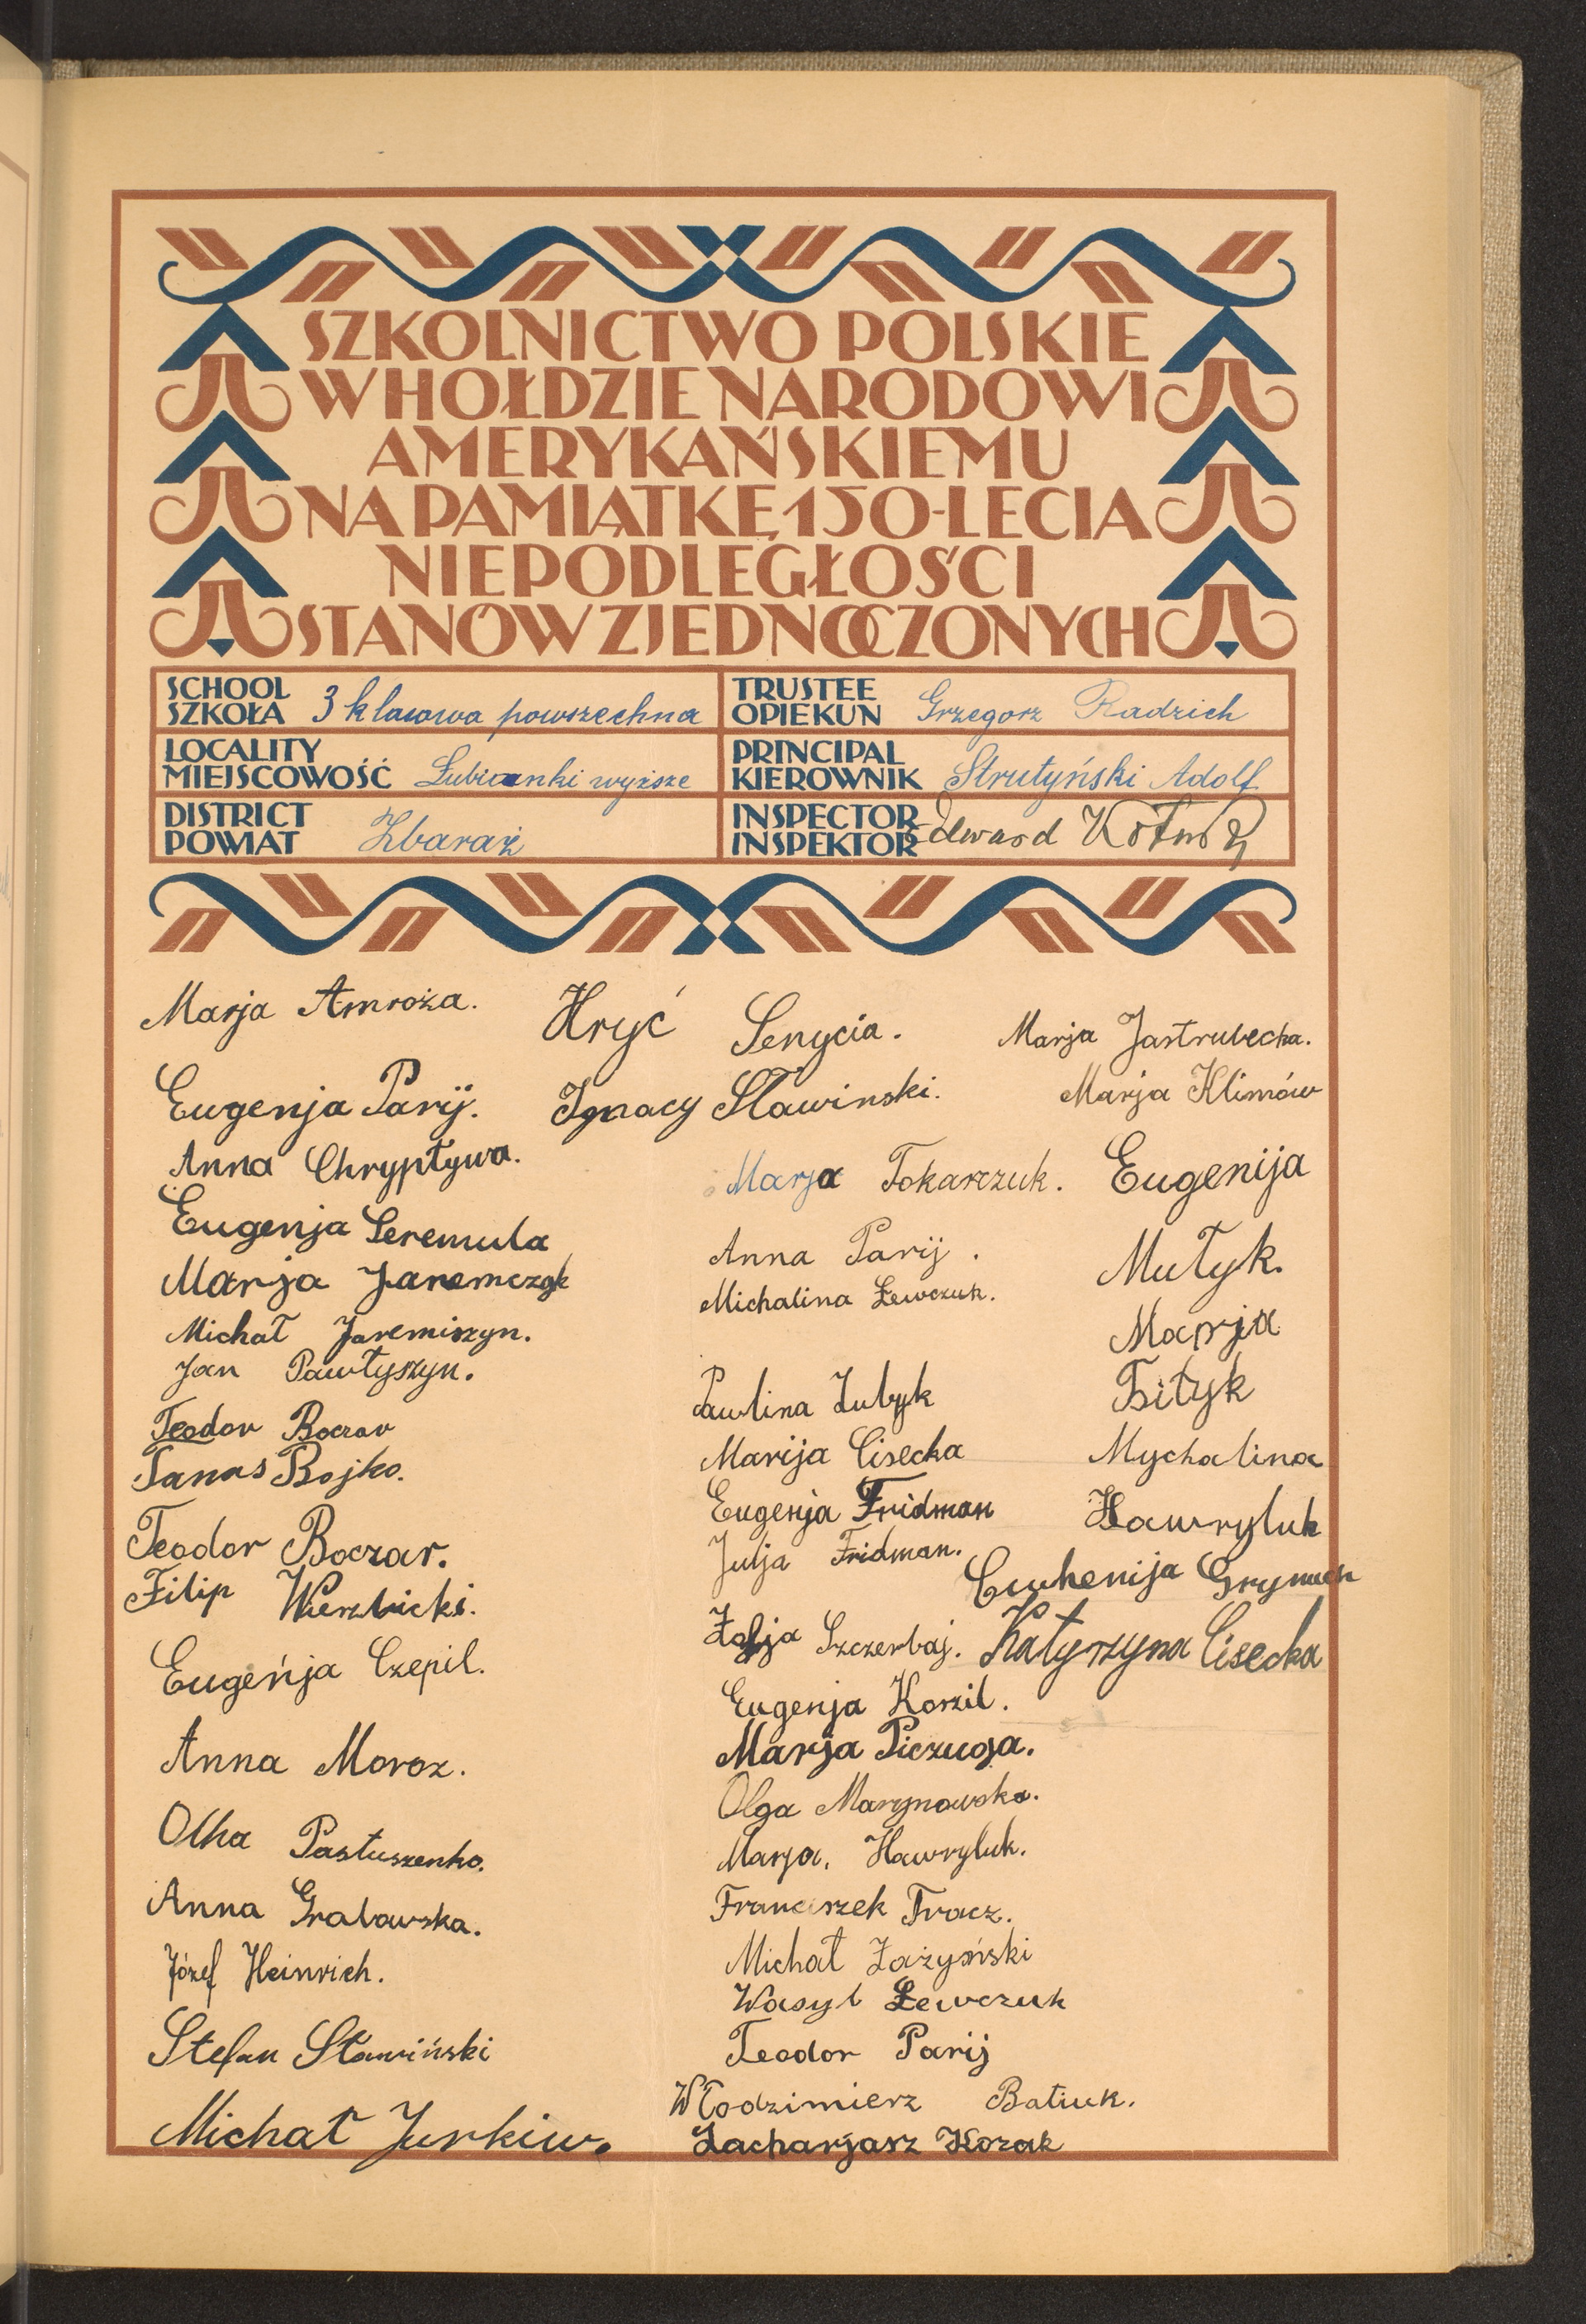 SZKOLNICTWO POLSKIE
W HOŁDZIE NARODOWI
AMERYKAŃSKIEMU
NA PAMIĄTKĘ 150-LECIA
NIEPODLEGŁOŚCI
STANÓW ZJEDNOCZONYCH
SCHOOL
SZKOŁA 3 klasowa powszechna
TRUSTEE
OPIEKUN Grzegorz Radzich
LOCALITY
MIEJSCOWOŚĆ Lubianki wyższe
PRINCIPAL
KIEROWNIK Strutyński Adolf
DISTRICT
POWIAT Zbaraż
INSPECTOR
INSPEKTOR Edward
Marja Amroża.
Eugenja Parij.
Anna Chryptywa.
Eugenja Seremula
Marja Jaremczyk
Michał Jaremiszyn.
Jan Pawłyszyn.
Teodor Boczar
Panas Bojko.
Teodor Boczar.
Filip Wierzbicki.
Eugenja Czepil.
Anna Moroz.
Olha Pastuszenko.
Anna Grabowska.
Józef Heinrich.
Stefan Sławiński
Michał Jurkiw.
Hryć Senycia.
Ignacy Sławinski.
Marja Tokarczuk.
Anna Parij.
Michalina Lewczuk.
Paulina Zubyk
Marija Cisecka
Eugenja Fridman
Julja Fridman.
Zofja Szczerbaj.
Eugenja Korzil.
Marja Piczuga.
Olga Marynowska.
Marja. Hawryluk.
Franciszek Tracz.
Michał Zażyński
Wasyl Lewczuk
Teodor Parij
Włodzimierz Batiuk.
Zacharjasz Kozak
Marja Jastrubecka.
Marja Klimów
Eugenija
Mułyk.
Marja
Biłyk
Mychalina
Hawryluk
Ewhenija Grymuch
Katyrzyna Cisecka